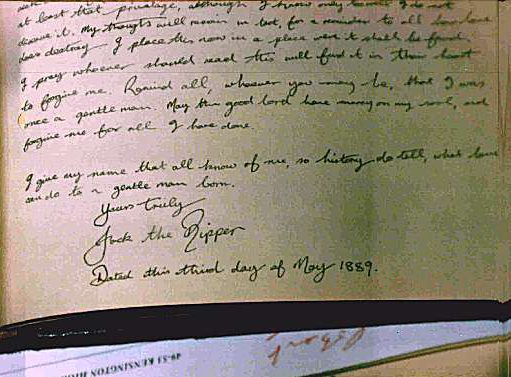 at least that privalage, although I know only I do not
deserve it. My thoughts will remain in text, for a reminder to all how love
does destroy. I place this now in a place were it shall be found.
I pray whoever should read this will find it in there heart
to forgive me. Remind all, whoever you may be, that I was
once a gentle man. May the good lord have mercy on my soul, and
forgive me for all I have done.
I give my name that all know of me, so history do tell, what love
can do to a gentle man born.
Yours truly
Jack the Ripper
Dated this third day of May 1889.
49-53 KENSINGTON